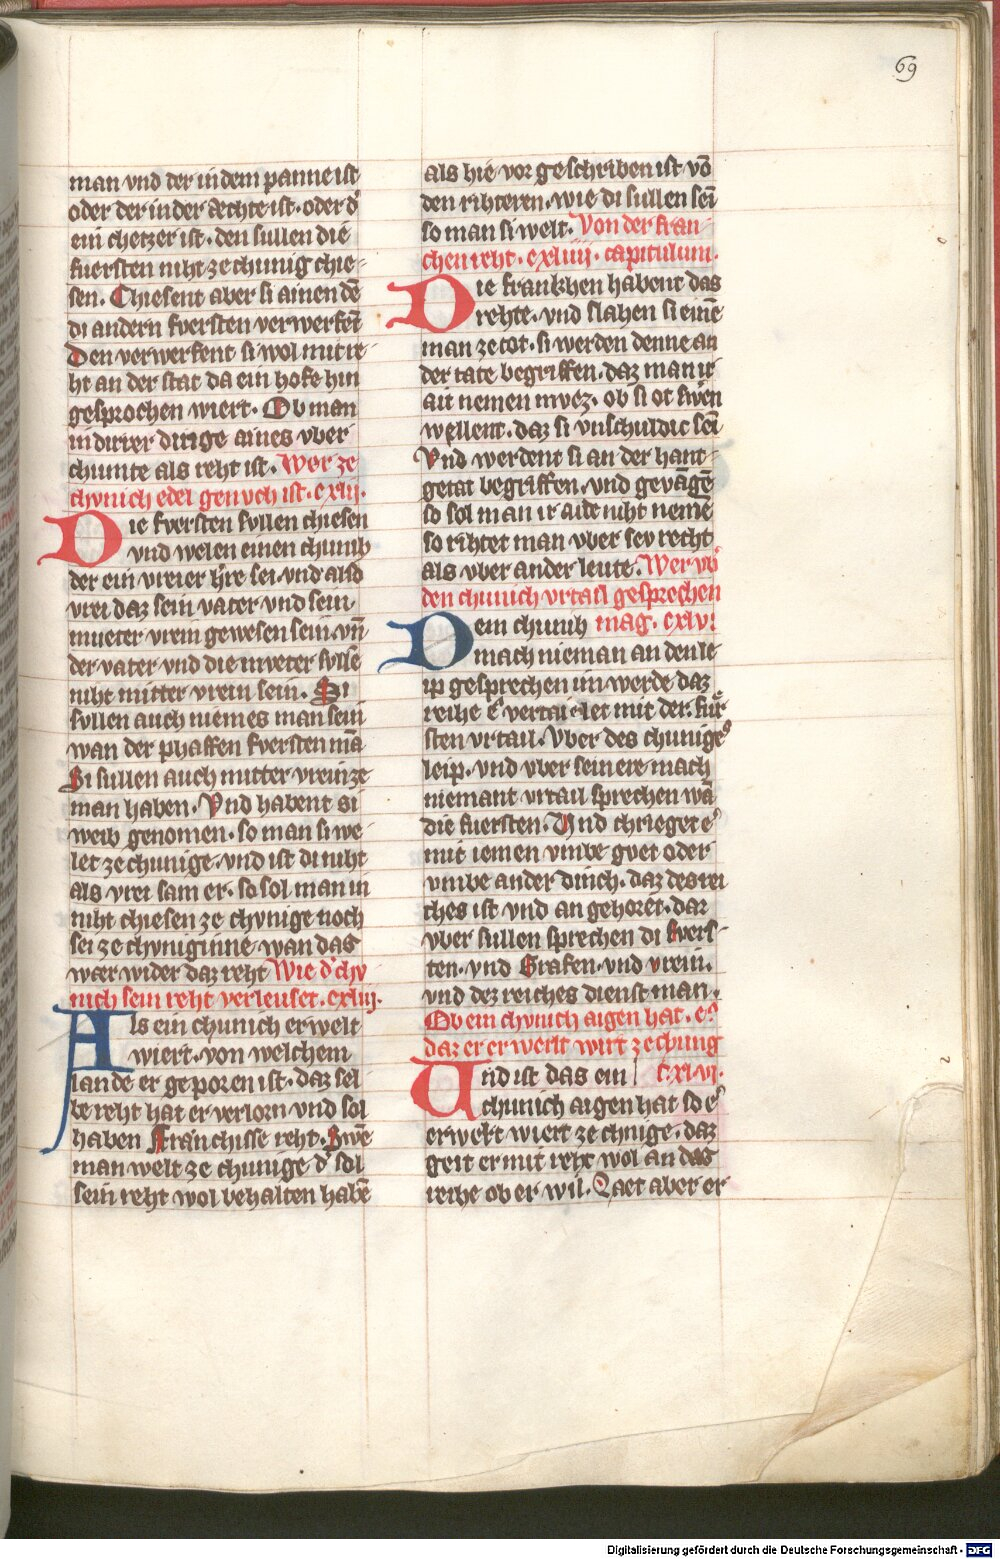 69
man vnd der in dem panne ist
oder der in der æchte ist · oder d̾
ein chetzer ist · den sullen die
fuersten niht ze chunig chie-
sen · Chiesent aber si ainen dē
di andern fversten verwerfēt
Den verwerfent si wol mit re-
ht an der stat da ein hofe hin
gesprochen wiert · Ob man
in dirrer dinge aines vber
chumte als reht ist · Wer ze
chvnich edel genvch ist · cxlii ·
Die fversten svllen chiesen
vnd welen einen chunih
der ein vreier h̾re sei · vnd also
vrei daz sein vater vnd sein
mueter vrein gewesen sein · vn̄
der vater vnd die mveter svllē
niht mitter vrein sein · Si
svllen auch niemes man sein
wan der phaffen fversten mā
Si sullen auch mitter vrein ze
man haben · Vnd habent si
weib genomen · so man si we-
let ze chunige · vnd ist di niht
als vrei sam er · so sol man in
niht chiesen ze chvnige noch
sei ze chvniginne · wan das
wær wider daz reht Wie d̾ chv
nich sein reht verleuset · cxliii ·
Als ein chunich erwelt
wiert · von welchem
lande er geporen ist · daz sel
be reht hat er verlorn vnd sol
haben Franchisse reht · Swē
man welt ze chunige d̾ sol
sein reht wol behalten habē
als hie vor geschriben ist vō
den rihteren · wie di sullen sei
so man si welt · Von der fran-
chen reht · cxliiii · capitulum ·
Die frankhen habent das
rehte · vnd slahen si einē
man ze tot · si werden denne an
der tate begriffen · daz man ir
ait nemen mvez · ob si ot swen
wellent · daz si vnschuldic sei
Vnd werdent si an der hant-
getat begriffen · vnd gevāgē
so sol man ir aide niht nemē
so rihtet man vber sev recht
als vber ander leute · Wer vb̾
den chunich vrtail gesprechen
Dem chunih mag · cxlv ·
mach nieman an den le-
ip gesprechen im werde daz
reihe e vertailet mit der fur
sten vrtail · Vber des chuniges
leip · vnd vber sein ere mach
niemant vrtail sprechen wā
die fuersten · Vnd chrieget e͛
mit iemen vmbe gvet oder
vmbe ander dinch · daz des rei
ches ist vnd an gehoret · dar
vber sullen sprechen di fvers-
ten · vnd Grafen · vnd vrein ·
vnd dez reiches dienstman ·
Ob ein chvnich aigen hat · e͛
daz er erwelt wirt ze chunig
Vnd ist das ein cxlvi ·
chunich aigen hat so e͛
erwelt wiert ze chnige · daz
geit er mit reht wol an das
reihe ob er wil · Laet aber er
Digitalisierung gefördert durch die Deutsche Forschungsgemeinschaft - DFG